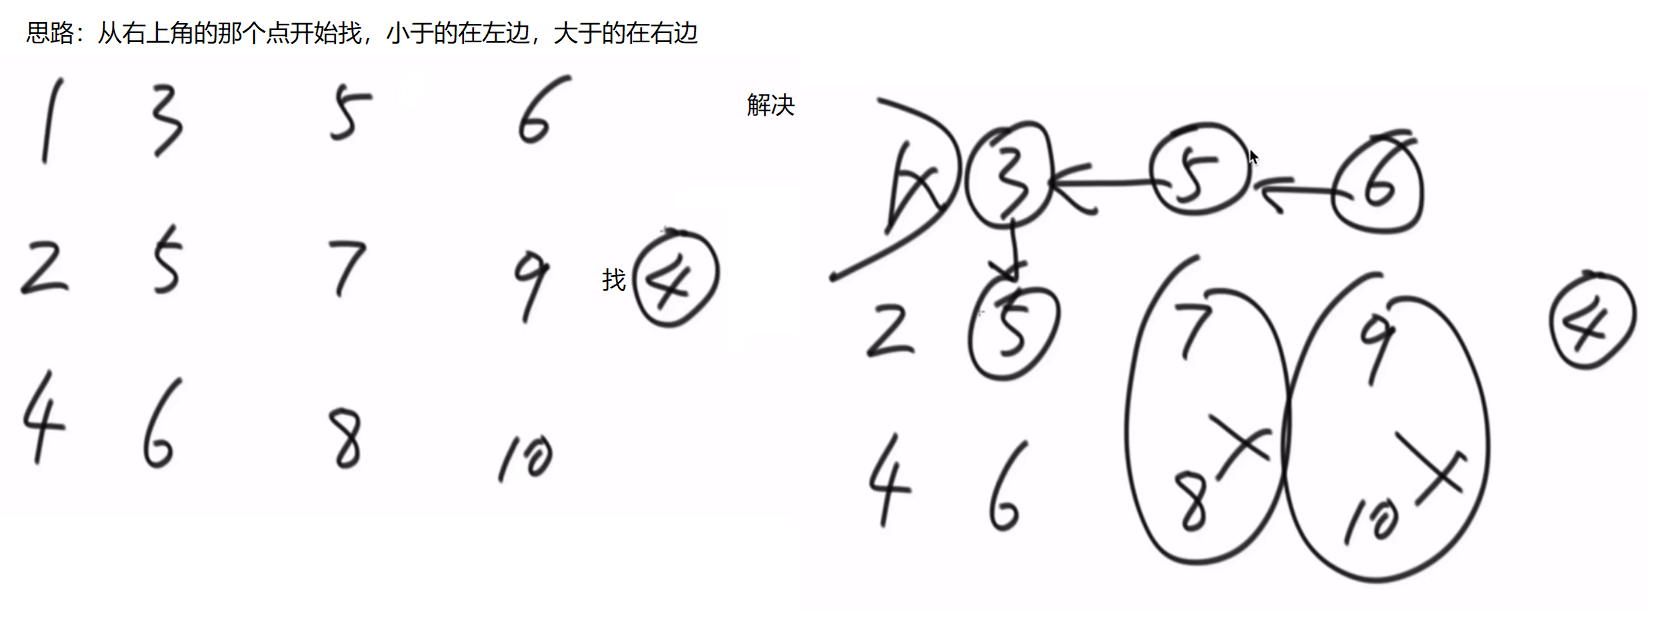 思路：从右上角的那个点开始找，小于的在左边，大于的在右边
1 3 5 6
2 5 7 9
4 6 8 10
找 4
解决
1 3 5 6
2 5 7 9 4
4 6 8 10